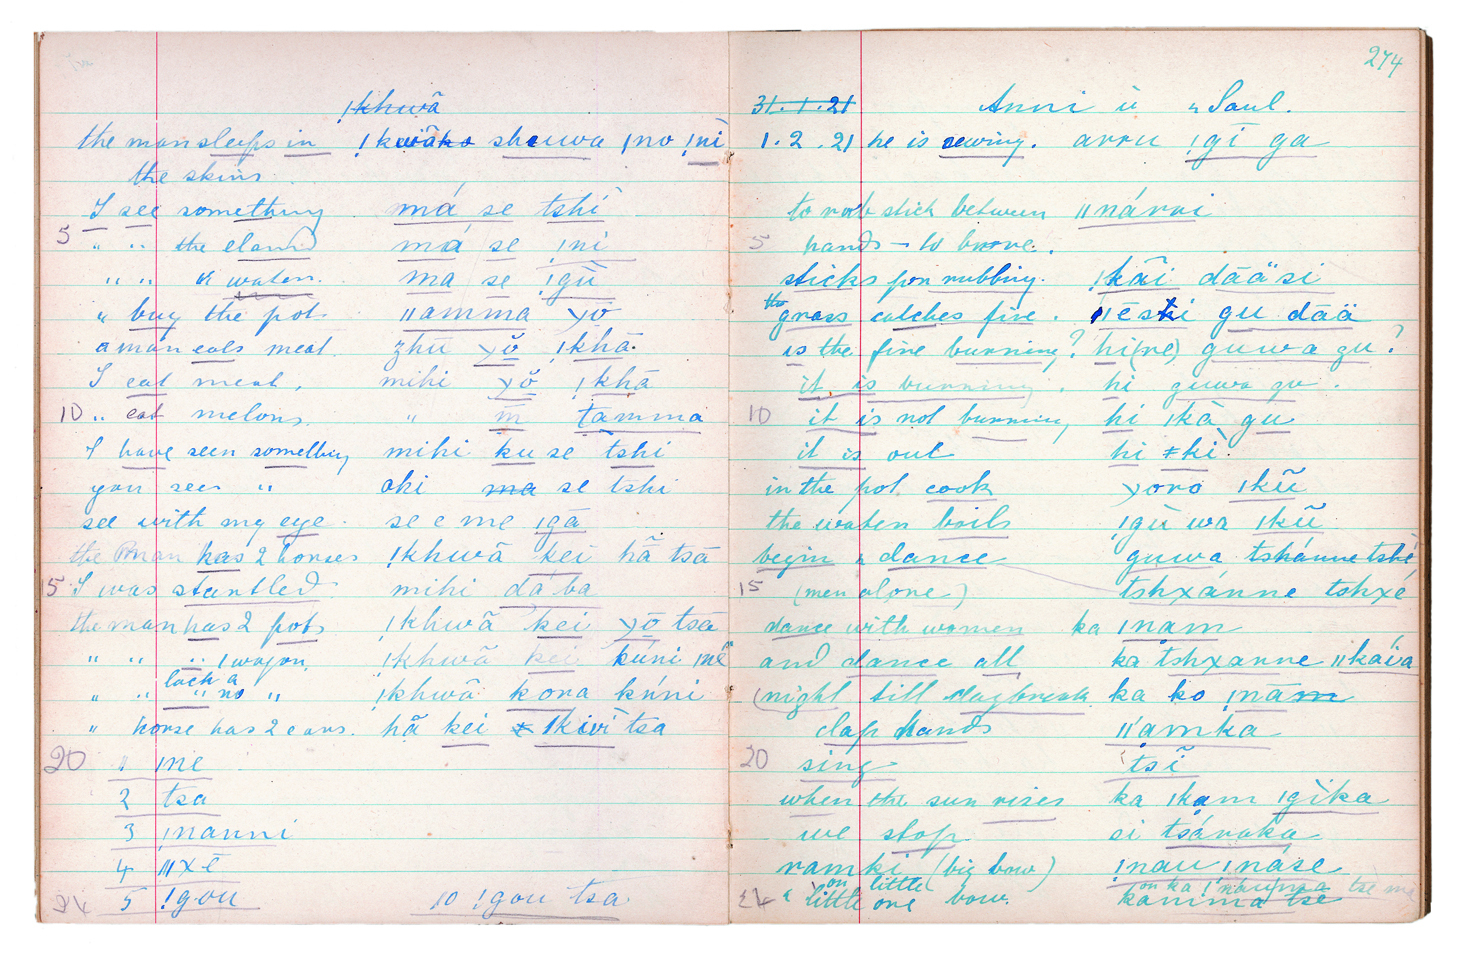 ǃkhwã
the man sleeps in ǃkwãko shuwa ǀno ǃni
the skins
I see something má se tshí
5 " " the eland má se ǃni
" " " water ma se ǃgù
" buy the pot ǁamma ɣo
a man eats meat. zhu ɣŏ ǃkhā.
I eat meat, mihi ɣŏ ǃkhā
10 " eat melons. " m tamma
I have seen something mihi ku se tshi
you see " aki ma se tshi
see with my eye. se e me ǀgā
the man has 2 horses ǃkhwã kei hã tsā
15 I was startled mihi dá ba
the man has 2 pots ǃkhwã kei ɣō tsā
" " " 1 wagon, ǃkhwã kei kúni ǀnē
lack a
" " " no " ǃkhwã kora kúni
" horse has 2 ears. hã kei ǀkwi tsa
20 1 ǀne
2 tsa
3 ǀnanni
4 ǁxē
5 ǃgou 10 ǃgou tsa.
24
274
31.1.21 Anni ù " Saul.
1.2.21 he is sewing. arru ǃgī ga
to rub stick between ǁnárri
5 hands – to brore.
sticks for rubbing. ǃkāi dāäsi
the
grass catches fire. ǁēski gu dāä
is the fire burning? hi(re) guwa gu?
it is burning. hi guwa gu.
10 it is not burning hi ǀkà gu
it is out hi ǂkì.
in the pot cook ɣoro ǀkũ
the water boils ǃgù wa ǀkũ
begin " dance guwa tshánne tshé
15 (men alone) tshxánne tshxé
dance with women ka ǀnam
and dance all ka tshxanne ǁkáíva
(night till daybreak ka ko ǀnām
clap hands ǁamka
20 sing tsĩ
when the sun rises ka ǀkam ǀgìka
we stop si tsáraka
ramki (big bow) ǃnau ǃnáse
on little on ka ǃnauma tse me
24 " little one bow. kamma tse